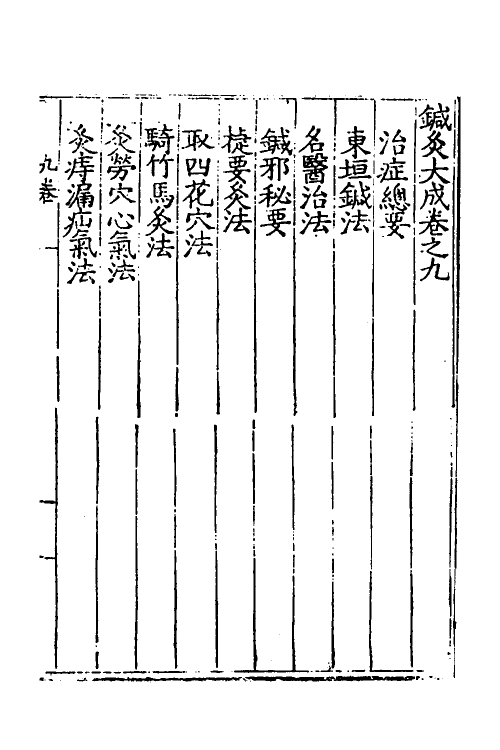 鍼灸大成卷之九
治症總要
東垣鍼法
名醫治法
鍼邪秘要
揵要灸法
取四花穴法
騎竹馬灸法
灸勞穴心氣法
灸痔漏疝氣法
九卷